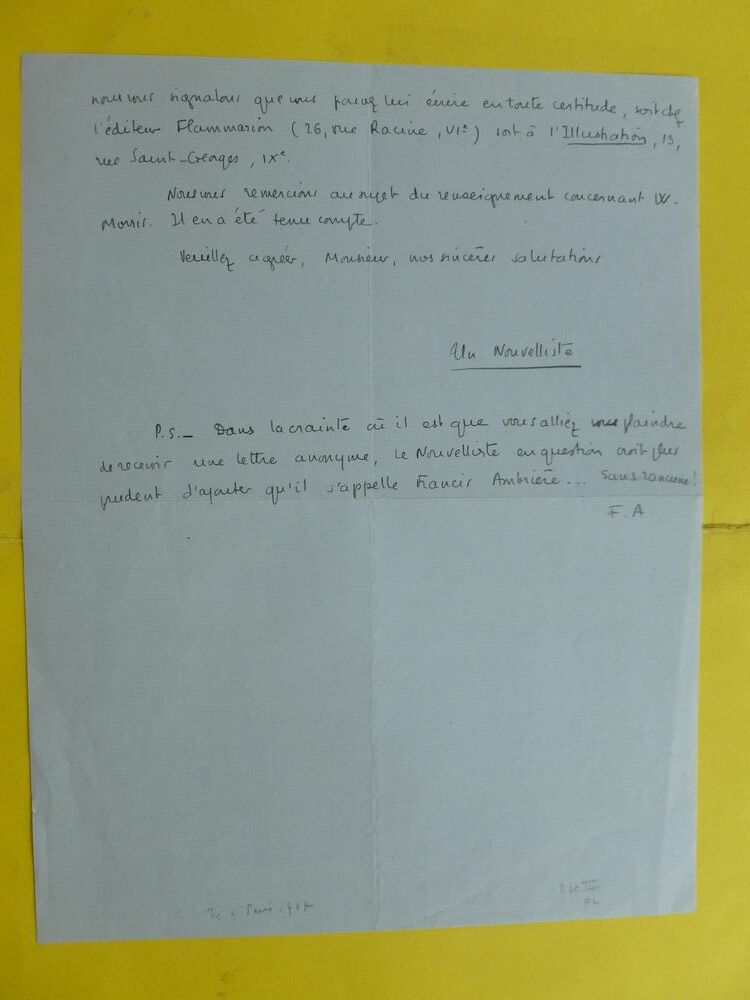 nous vous signalons que vous pouvez lui écrire en toute certitude, soit chez
l'éditeur Flammarion (26, rue Racine, VIe) soit à l'Illustration, 13,
rue Saint-Georges, IXe.
Nous vous remercions au sujet du renseignement concernant W.
Morris. Il en a été tenu compte.
Veuillez agréer, Monsieur, nos sincères salutations
Un Nouvelliste
P.S. _ Dans la crainte où il est que vous alliez vous plaindre
de recevoir une lettre anonyme, le Nouvelliste en question croit plus
prudent d'ajouter qu'il s'appelle Francis Ambrière... Sans rancune!
F.A.
PL